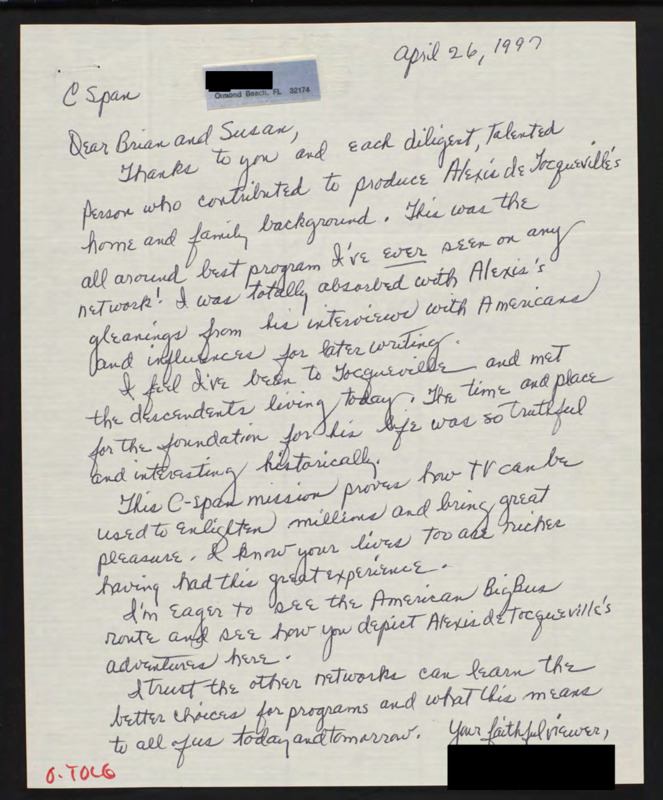 April 26, 1997
Ormond Beach, FL 32174
C Span
Dear Brian and Susan,
Thanks to you and each diligent, talented
person who contributed to produce Alexis de Tocqueville's
home and family background. This was the
all around best program I've ever seen on any
network! I was totally absorbed with Alexis's
gleanings from his interviews with Americans
and influences for later writing.
I feel I've been to Tocqueville and met
the descendents living today. The time and place
for the foundation for his life was so truthful
and interesting historically.
This C-Span mission proves how TV can be
used to enlighten millions and bring great
pleasure. I know your lives too are riches
having had this great experience.
I'm eager to see the American Big Bus
route and see how you depict Alexis de Tocqueville's
adventures here.
I trust the other networks can learn the
better choices for programs and what this means
to all of us today and tomorrow. Your faithful viewer,
O. TOCG